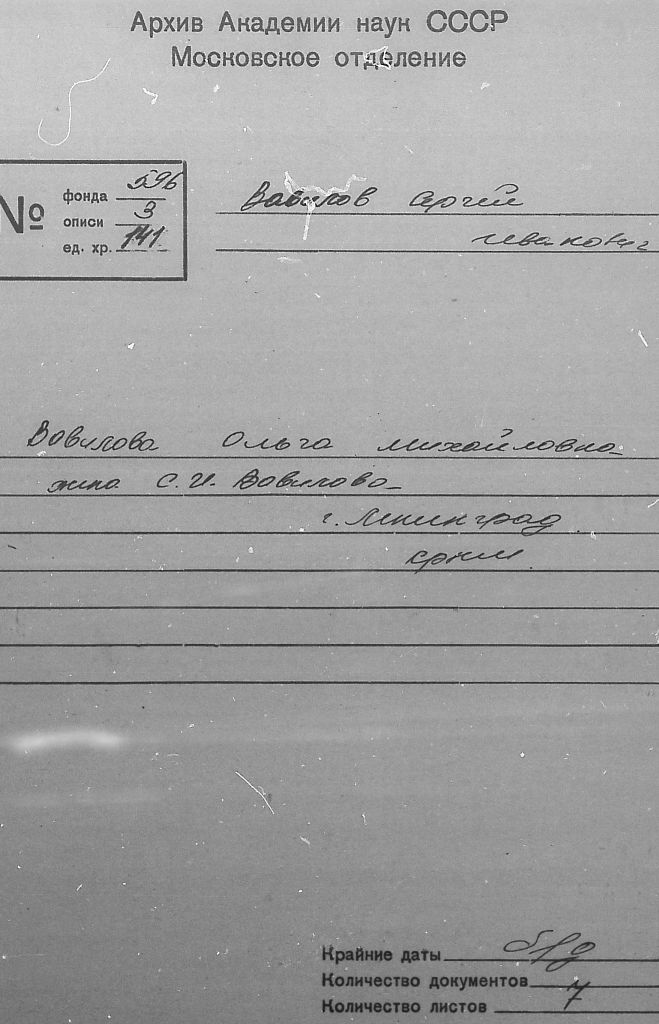 Архив Академии наук СССР
Московское отделение
№
фонда 596
описи 3
ед. хр. 141
Вавилов Сергей
Иванович
Вавилова Ольга Михайловна
жена С.И. Вавилова
г. Ленинград
Крайние даты б/д
Количество документов
Количество листов 7